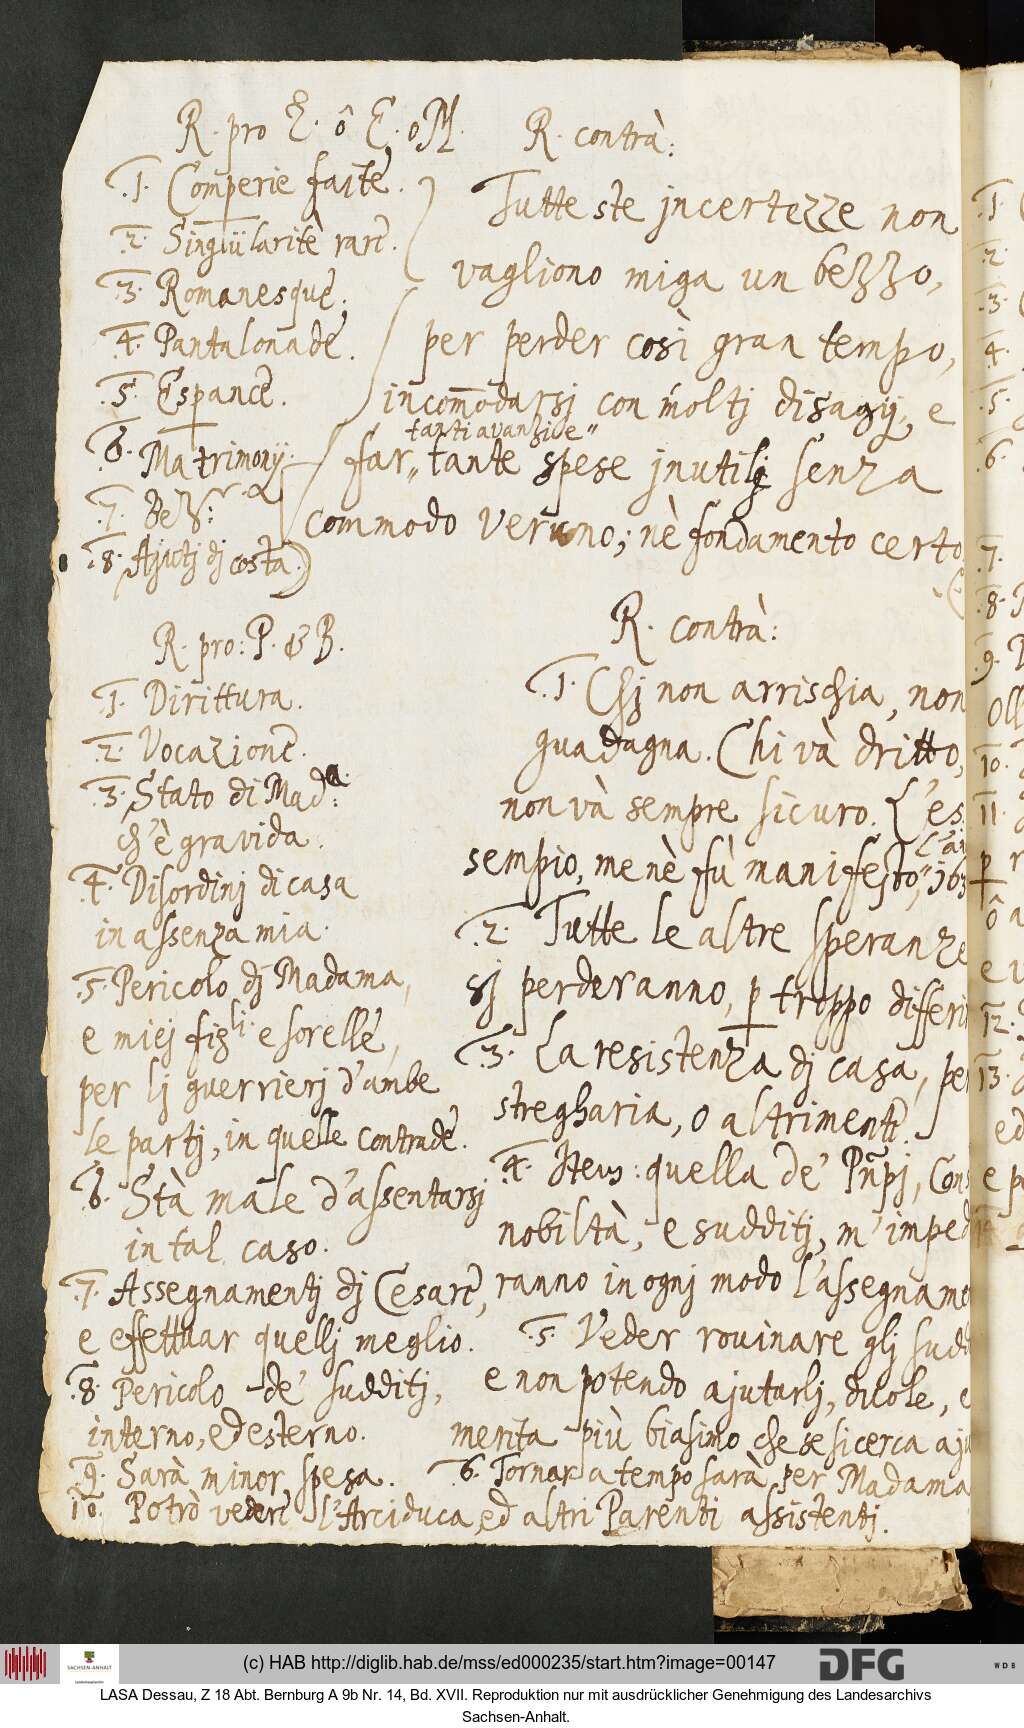 R. pro Z. ô E. o M.
.1. Comperie faite.
.2. Singüilaritè rare.
.3. Romanesque.
.4. Pantalonade.
.5. Espance.
.6. Matrimonij.
.7.
.8. Ajutj dj costa.
R. contrà:
Tutte ste jncertezze non
vagliono miga un bezzo,
per perder così gran tempo,
incom̄odarsj con moltj disagij, e
tanti avanzi, e"
far" tante spese jnutilj senza
commodo veruno; nè fondamento certo
R. pro: P. & B.
.1. Dirittura.
.2. Vocazione.
.3. Stato di Mad.a:
ch'è gravida.
.4. Disordinj di casa
in assenza mia.
.5. Pericolo dj Madama,
e miej figli. e sorelle,
per lj guerrierj d'ambe
le partj, in quelle contrade.
.6. Stà male d'assentarsj
in tal caso.
.7. Assegnamentj dj Cesare,
e effettuar quellj meglio.
.8. Pericolo de' sudditj,
interno, ed esterno.
.9. Sarà minor spesa.
10. Potrò vedere l'Arciduca, ed altri Parenti assistentj.
R. contrà:
.1. Chj non arrischia, non
guadagna. Chi và dritto,
non và sempre sicuro. L'es
sempio, me nè fù manifesto,
.2. Tutte le altre speranze
sj perderanno, p troppo differi
.3. La resistenza dj casa, per
stregharia, o altrimente.
.4. Item: quella de' Pñpj, Cons
nobiltà, e sudditj, m'impedi
ranno in ognj modo l'assegname
.5. Veder rovinare glj sudd
e non potendo ajutarlj, duole, e
merita più biasimo che se si cerca aju
.6. Tornar a tempo sarà, per Madama
(c) HAB http://diglib.hab.de/mss/ed000235/start.htm?image=00147
SACHSEN-ANHALT
DFG
WDB
LASA Dessau, Z 18 Abt. Bernburg A 9b Nr. 14, Bd. XVII. Reproduktion nur mit ausdrücklicher Genehmigung des Landesarchivs
Sachsen-Anhalt.